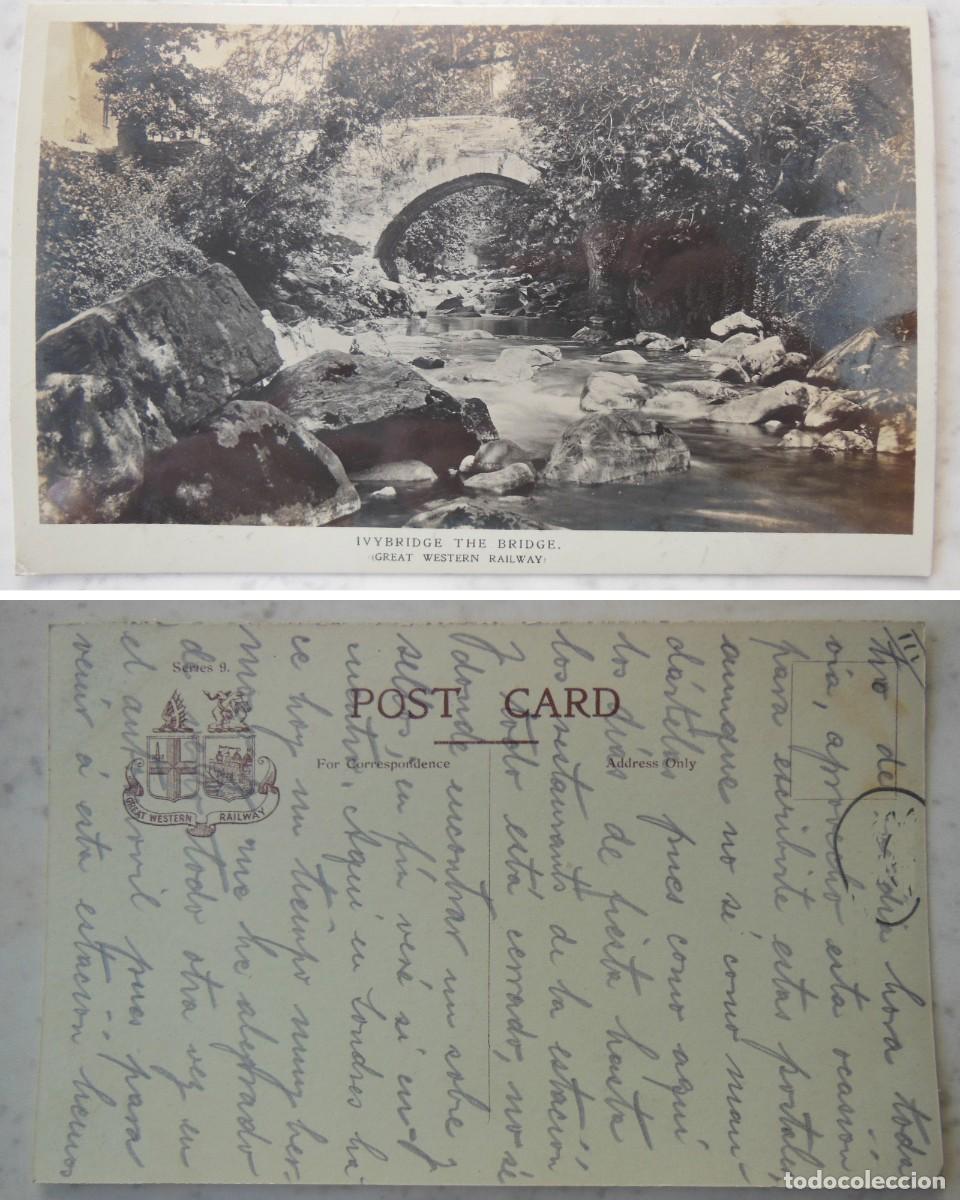 IVYBRIDGE THE BRIDGE.
(GREAT WESTERN RAILWAY)
Series 9.
POST CARD
For Correspondence
Address Only
GREAT WESTERN RAILWAY
III
tro de hora toda
vía, aprovecho esta ocasión
para escribirte estas postales,
aunque no sé cómo man-
dártelas pues como aquí
los días de fiesta hasta
los restaurants de la estación
y todo está cerrado, no sé
donde encontrar un sobre y
sellos en fín veré si encu-
entro. Aquí en Londres ha-
ce hoy un tiempo muy her-
moso que he alegrado
de todo otra vez en
el automóvil pues para
venir á esta estación hemos
todocoleccion
todocoleccion.net